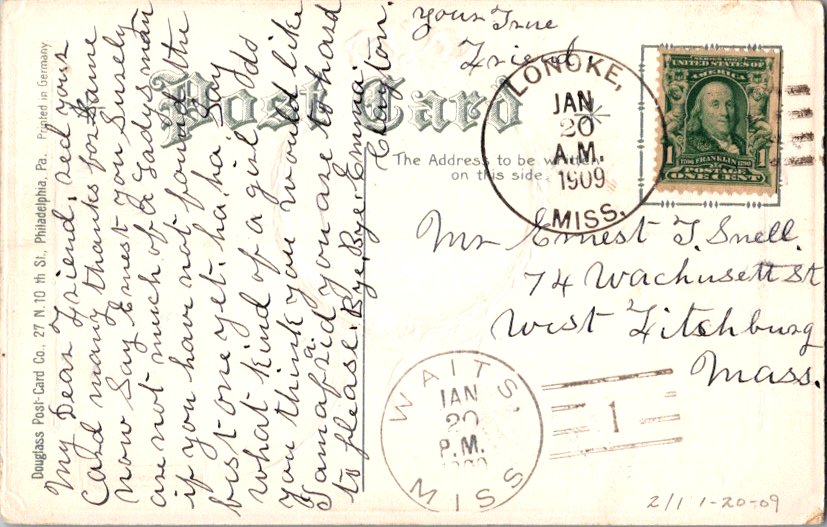 My Dear Friend, recd your
Card many thanks for same
now Say Ernest you Surely
are not much of a ladys man
if you have not found the
best one yet. ha, ha, Say
what kind of a girl do
you think you would like
I am afraid you are to hard
to please. Bye, Bye, Emma
Clayton.
your True
Friend
Post Card
The Address to be written
on this side.
Douglass Post-Card Co., 27 N. 10 th St., Philadelphia, Pa. Printed in Germany
LONOKE,
JAN
20
A.M.
1909
MISS.
SERIES 1902
UNITED STATES OF
AMERICA
1 1706 FRANKLIN 1790 1
POSTAGE
ONE CENT
Mr Ernest T. Snell.
74 Wachusett St
West Fitchburg
Mass.
WAITS,
JAN
20
P.M.
1909
MISS
1
2/1 1-20-09